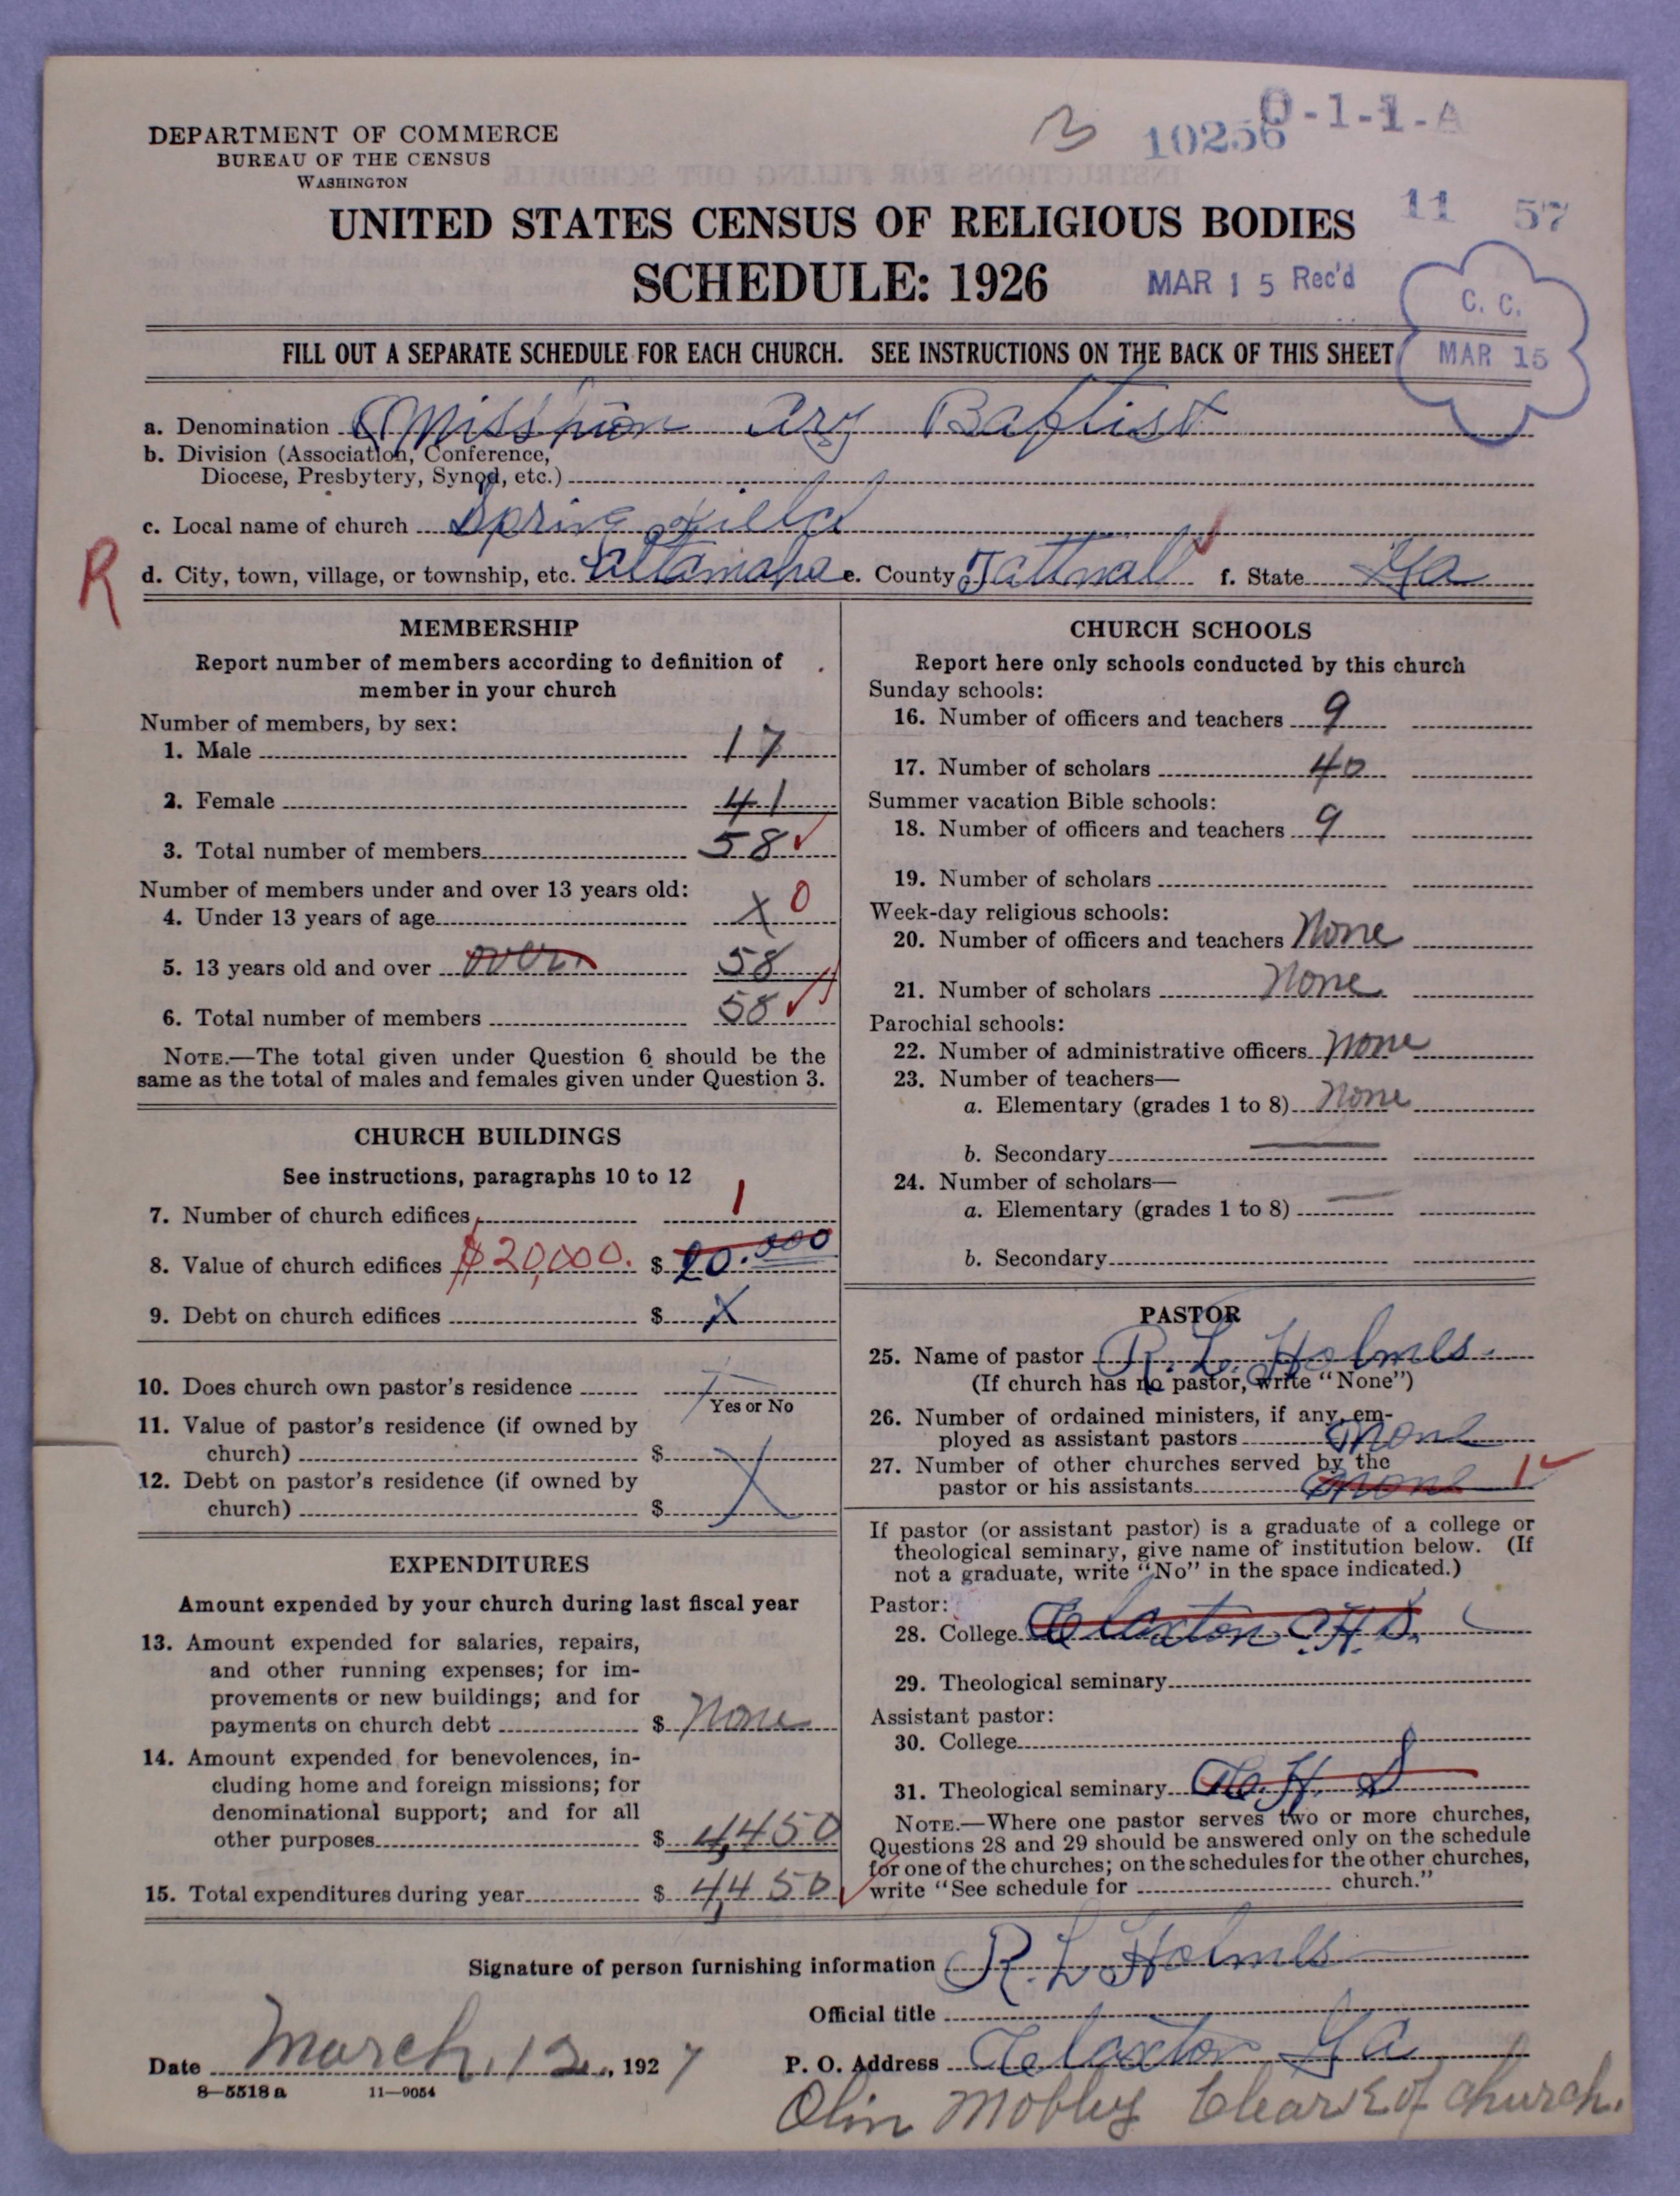 B 10256 O-1-1-A
DEPARTMENT OF COMMERCE
BUREAU OF THE CENSUS
WASHINGTON
11 57
UNITED STATES CENSUS OF RELIGIOUS BODIES
SCHEDULE: 1926
MAR 15 Rec'd
C. C.
MAR 15
FILL OUT A SEPARATE SCHEDULE FOR EACH CHURCH. SEE INSTRUCTIONS ON THE BACK OF THIS SHEET
a. Denomination Misshion ary Baptist
b. Division (Association, Conference,
Diocese, Presbytery, Synod, etc.)
c. Local name of church Spring Field
R
d. City, town, village, or township, etc. Altamaha e. County Tattnall f. State Ga
MEMBERSHIP
Report number of members according to definition of
member in your church
Number of members, by sex:
1. Male 17
2. Female 41
3. Total number of members 58
Number of members under and over 13 years old:
4. Under 13 years of age X 0
5. 13 years old and over over 58
6. Total number of members 58
NOTE.—The total given under Question 6 should be the
same as the total of males and females given under Question 3.
CHURCH BUILDINGS
See instructions, paragraphs 10 to 12
7. Number of church edifices 1
8. Value of church edifices $20,000. $ 20.000
9. Debt on church edifices $ X
10. Does church own pastor's residence
Yes or No
11. Value of pastor's residence (if owned by
church) $
12. Debt on pastor's residence (if owned by
church) $ X
EXPENDITURES
Amount expended by your church during last fiscal year
13. Amount expended for salaries, repairs,
and other running expenses; for im-
provements or new buildings; and for
payments on church debt $ None
14. Amount expended for benevolences, in-
cluding home and foreign missions; for
denominational support; and for all
other purposes $ 4,450
15. Total expenditures during year $ 4,450
CHURCH SCHOOLS
Report here only schools conducted by this church
Sunday schools:
16. Number of officers and teachers 9
17. Number of scholars 40
Summer vacation Bible schools:
18. Number of officers and teachers 9
19. Number of scholars
Week-day religious schools:
20. Number of officers and teachers None
21. Number of scholars None
Parochial schools:
22. Number of administrative officers none
23. Number of teachers—
a. Elementary (grades 1 to 8) None
b. Secondary
24. Number of scholars—
a. Elementary (grades 1 to 8)
b. Secondary
PASTOR
25. Name of pastor R. L. Holmes.
(If church has no pastor, write "None")
26. Number of ordained ministers, if any, em-
ployed as assistant pastors none
27. Number of other churches served by the
pastor or his assistants none 1
If pastor (or assistant pastor) is a graduate of a college or
theological seminary, give name of institution below. (If
not a graduate, write "No" in the space indicated.)
Pastor:
28. College Claxton H. S.
29. Theological seminary
Assistant pastor:
30. College
31. Theological seminary C. H. S
NOTE.—Where one pastor serves two or more churches,
Questions 28 and 29 should be answered only on the schedule
for one of the churches; on the schedules for the other churches,
write "See schedule for church."
Signature of person furnishing information R. L Holmes
Official title
Date March, 12, 1927
P. O. Address Claxton Ga
8—5518 a 11—9054
Olin Mobley Cleark of church.